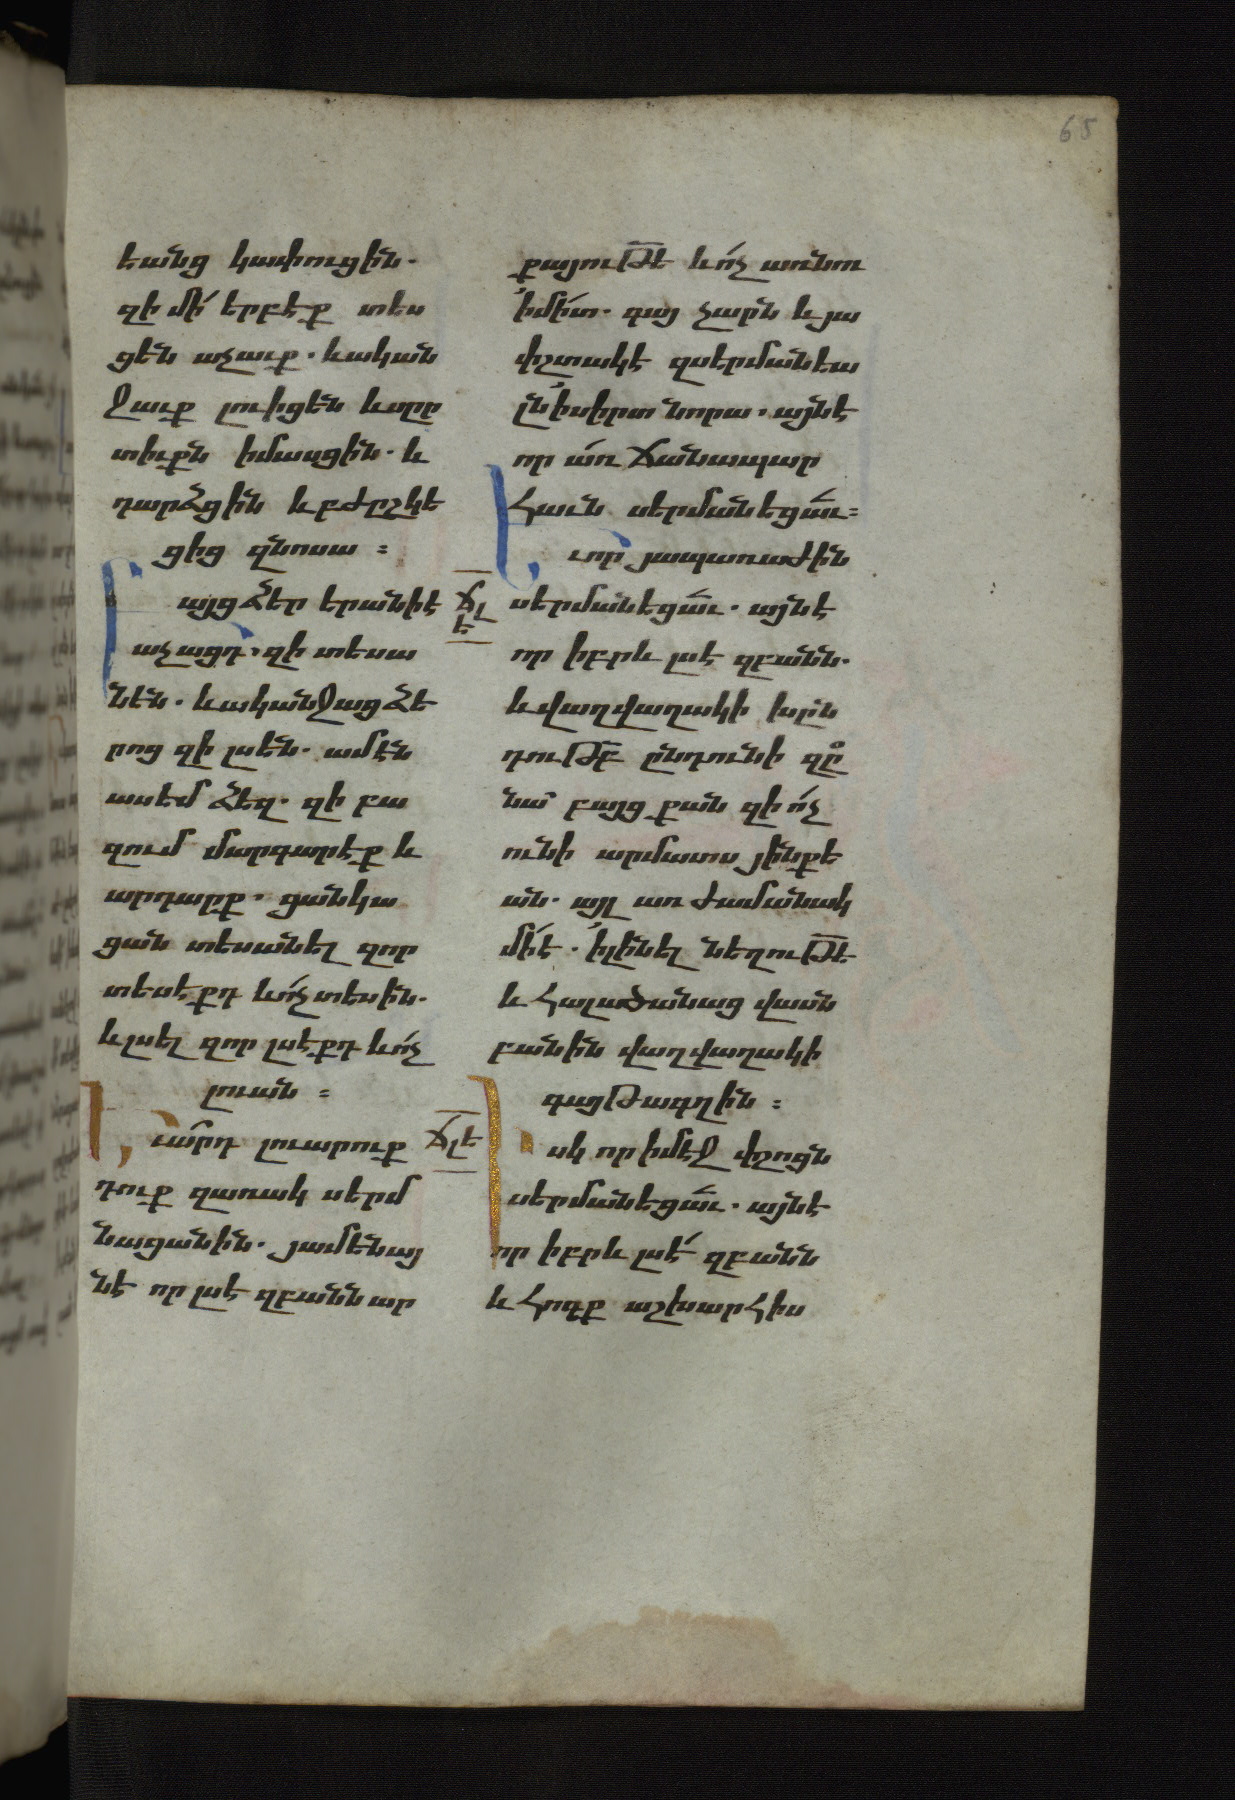 65
եանց կափուցին.
զի մի́ երբէք տես
ցեն աչաւք. ևական
ջաւք լուիցեն ևսրը
տիւքն իմասցին. և
դարձցին ևբժըշկե
ցից զնոսա :
այց ձեր երանիէ
աչացդ. զի տեսա
նեն. ևականջաց ձե
րոց զի լսեն. ամէն
ասեմ ձեզ. զի բա
զում մարգարէք և
արդարք. ցանկա
ցան տեսանել զոր
տեսէքդ ևո́չ տեսին.
ևլսել զոր լսէքդ ևո́չ
լուան :
ւմ̄րդ լուարուք
դուք զառակ սերմ
նացանին. յամենայ
նէ որ լսէ զբանն ար
ճլ
է
ճլե
քայութ̄ե ևո́չ առնու
՚իմիտ. գայ չարն ևյա
փշտակէ զսերմանեա
լն՚իսիրտ նորա. այնէ
որ առ ճանապար
հաւն սերմանեցաւ̄:
ւոր յապառաժին
սերմանեցաւ̄. այնէ
որ իբրև լսէ զբանն.
ևվաղվաղակի խըն
դութ̄բ ընդունի զը̊
նա՟ բայց քան զի ո́չ
ունի արմատս յինքե
ան. այլ առ ժամանակ
մի́է. ՚իլինել նեղութ̄ե
և հալածանաց վասն
բանին վաղվաղակի
գայթագղին :
սկ որ իմէջ փշոցն
սերմանեցաւ̄. այնէ
որ իբրև լսէ զբանն
և հոգք աշխարհիս